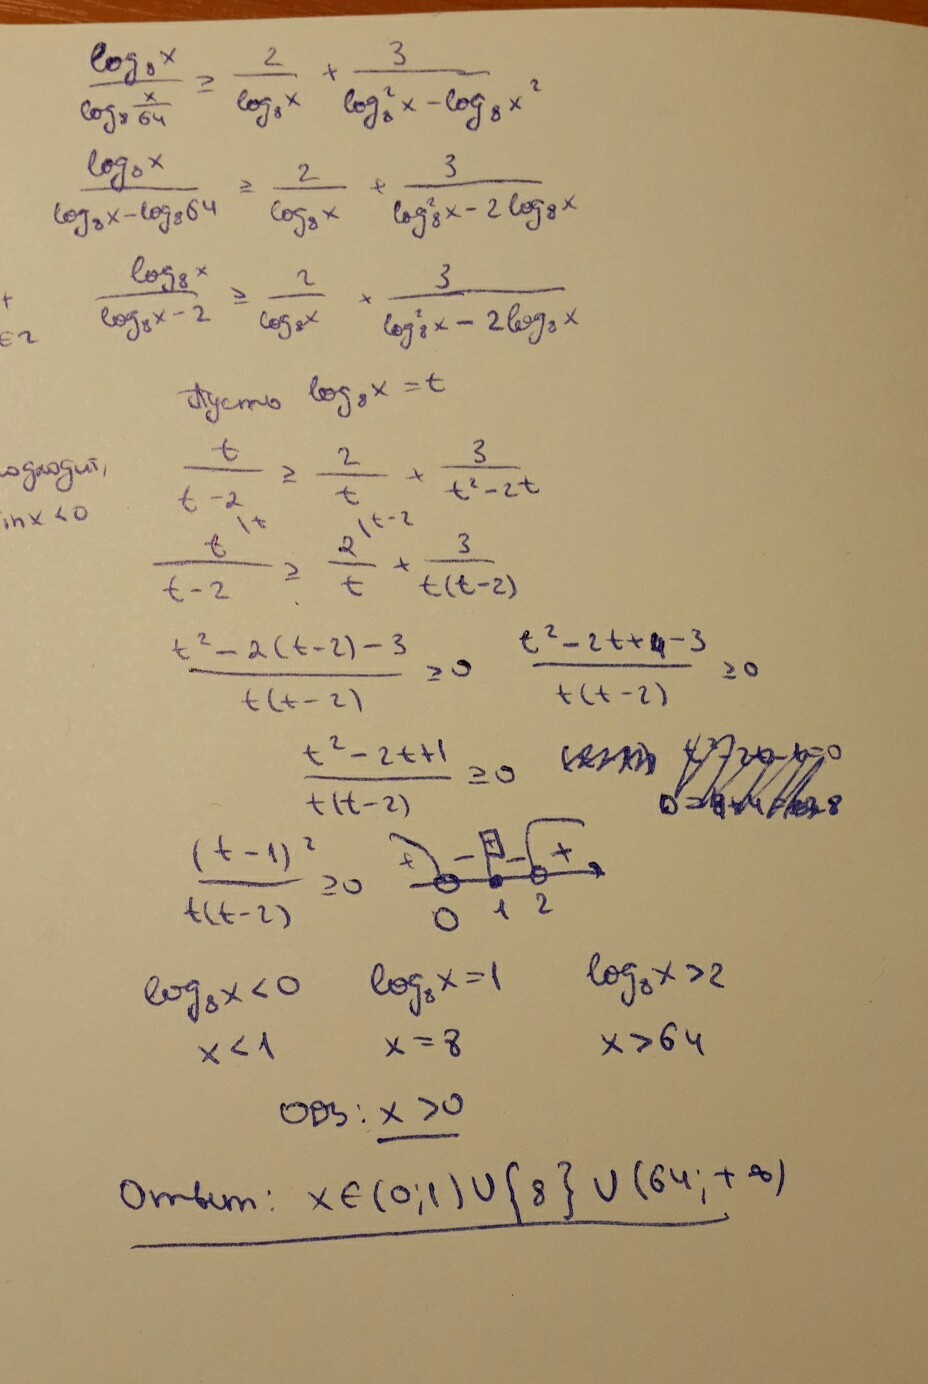 log₈x / log₈(x/64) ≥ 2/log₈x + 3/(log₈²x − log₈x²)
log₈x / (log₈x − log₈64) ≥ 2/log₈x + 3/(log₈²x − 2log₈x)
log₈x / (log₈x − 2) ≥ 2/log₈x + 3/(log₈²x − 2log₈x)
Пусть log₈x = t
t/(t−2) ≥ 2/t + 3/(t²−2t)
inx<0
t\t /(t−2) ≥ 2\t−2 /t + 3/(t(t−2))
(t²−2(t−2)−3)/(t(t−2)) ≥ 0 (t²−2t+4−3)/(t(t−2)) ≥ 0
(t²−2t+1)/(t(t−2)) ≥ 0
(t−1)²/(t(t−2)) ≥ 0 + − + − +
0 1 2
log₈x<0 log₈x=1 log₈x>2
x<1 x=8 x>64
ОДЗ: x>0
Ответ: x∈(0;1)∪{8}∪(64;+∞)